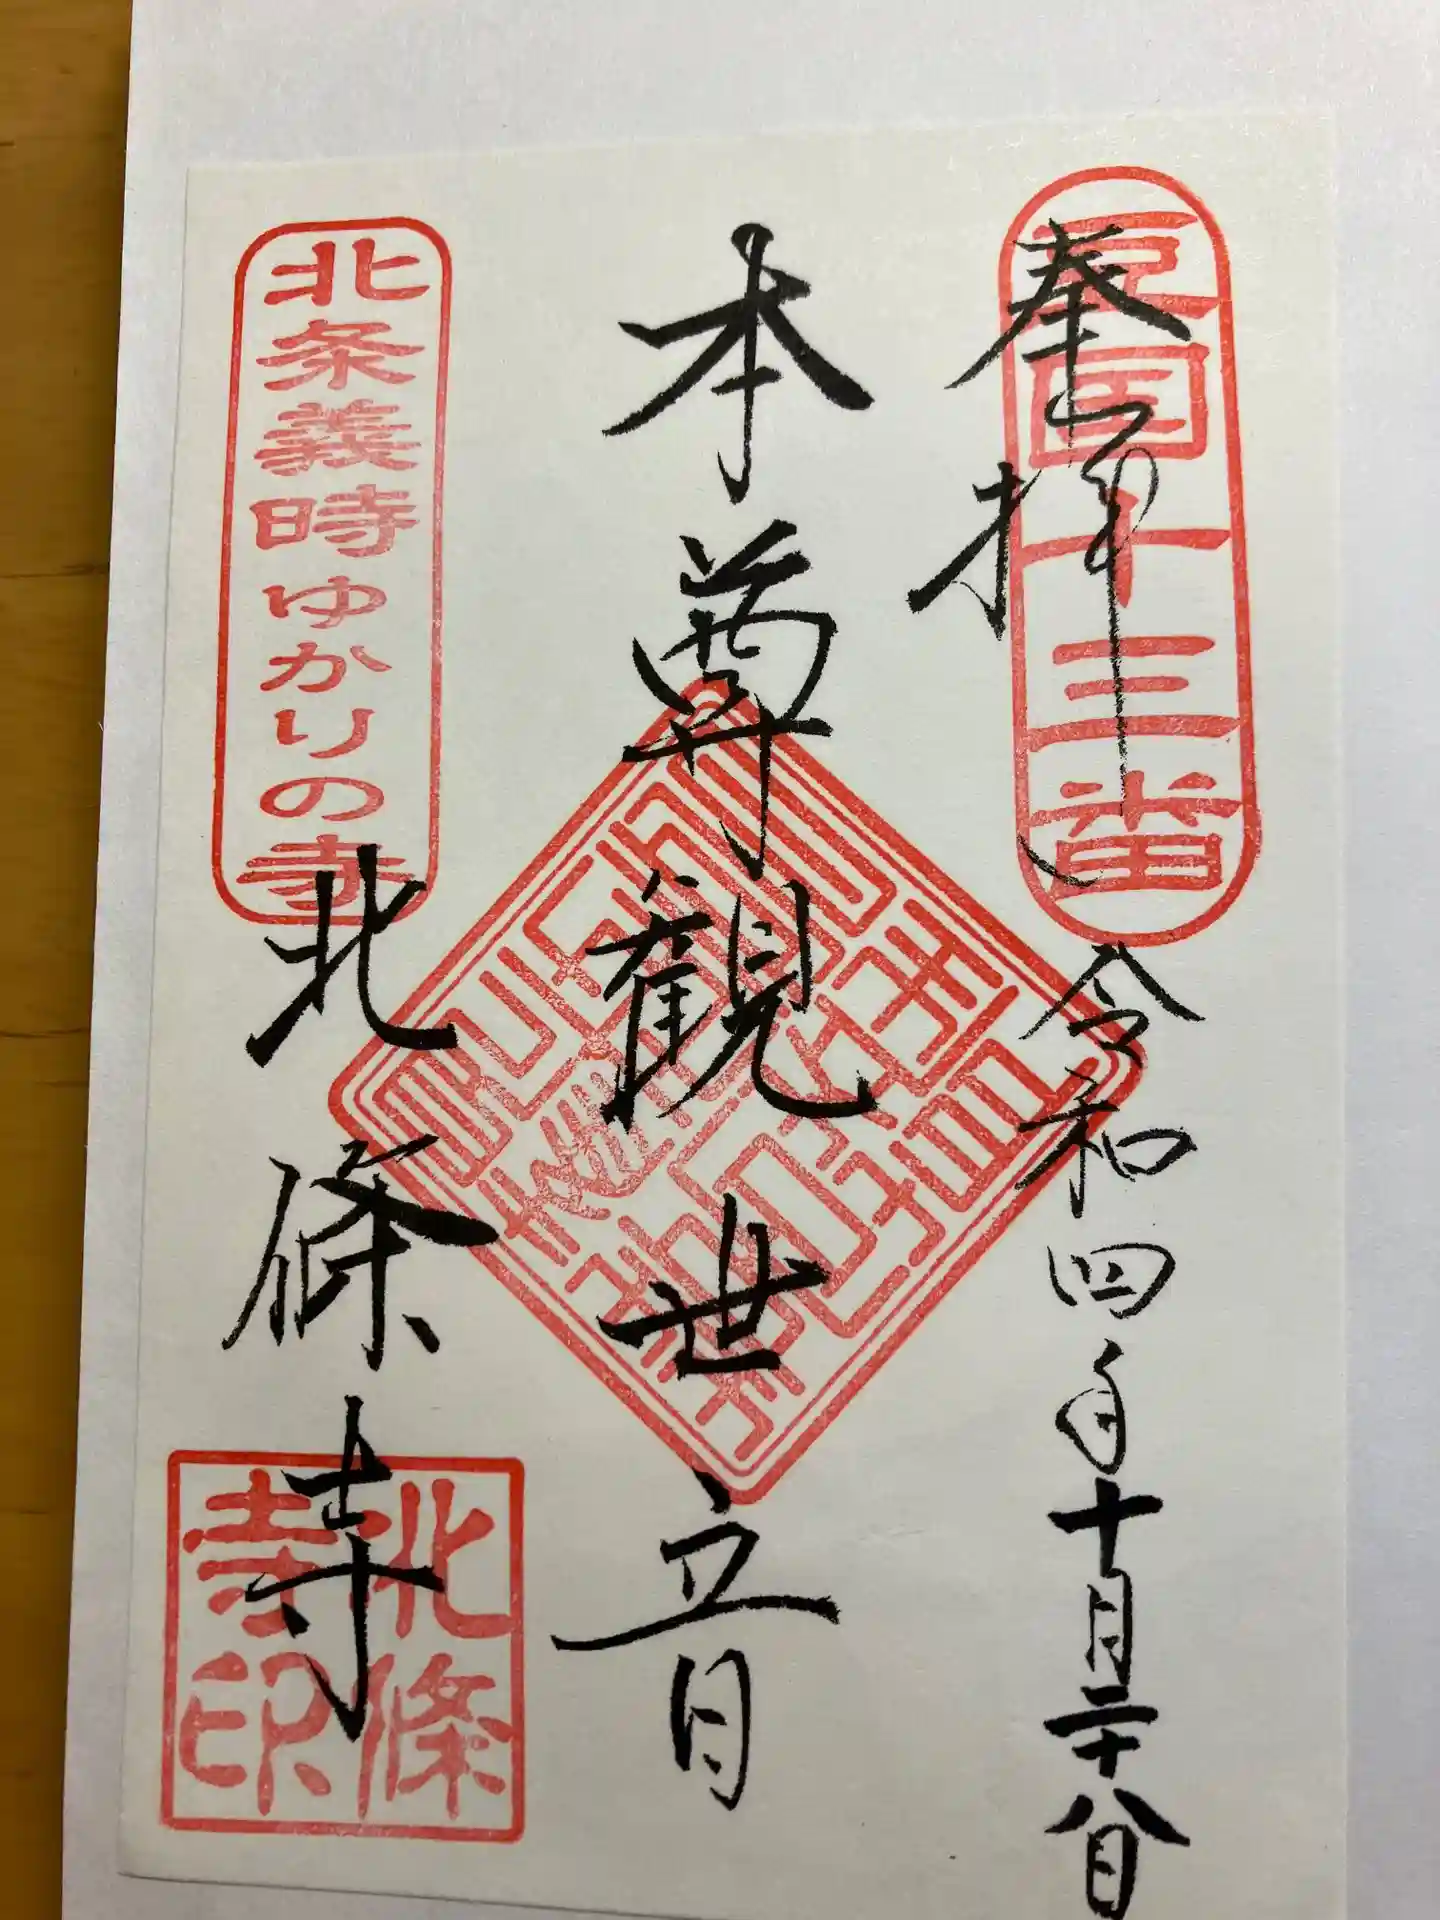 豆国十三番
奉拝
令和四年十月二十八日
本尊観世音
北条義時ゆかりの寺
北條寺
北條寺印